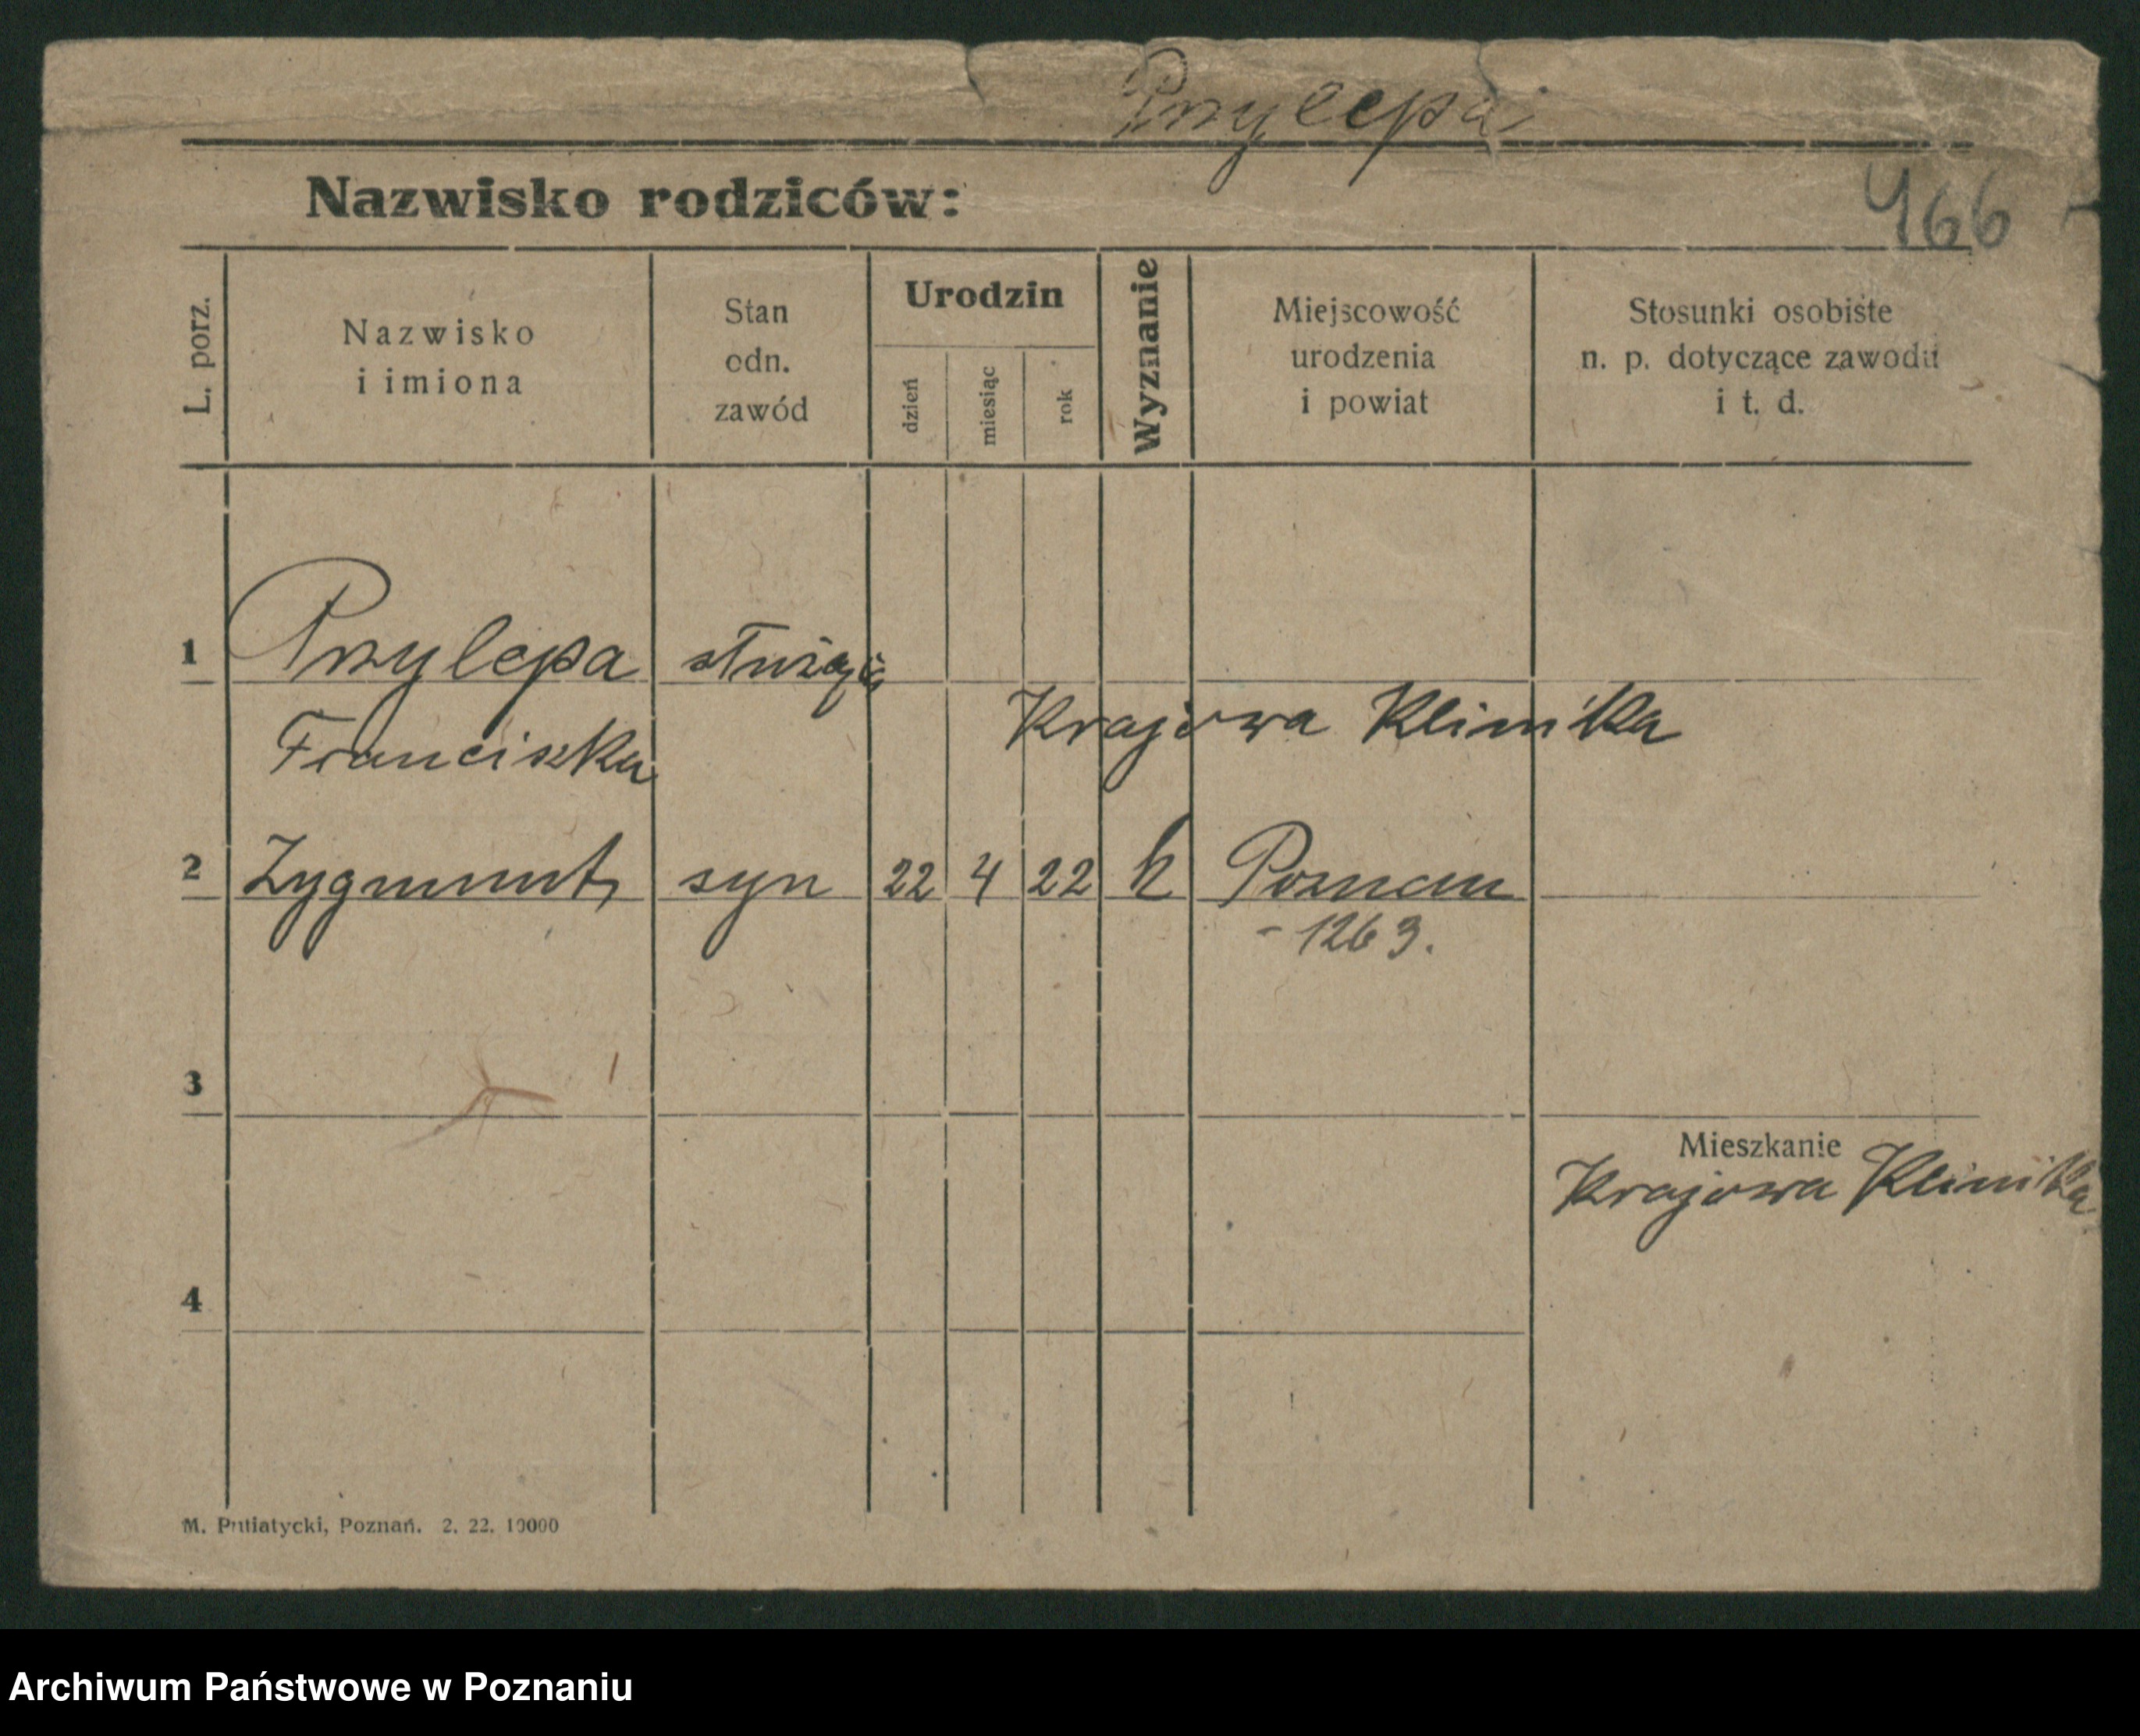 Przylepa
Nazwisko rodziców:
466
L. porz.
Nazwisko
i imiona
Stan
odn.
zawód
Urodzin
dzień
miesiąc
rok
Wyznanie
Miejscowość
urodzenia
i powiat
Stosunki osobiste
n. p. dotyczące zawodu
i t. d.
1 Przylepa służąca
Franciszka Krajowa Klinika
2 Zygmunt syn 22 4 22 k Poznan
- 1263.
3
Mieszkanie
Krajowa Klinika
4
M. Putiatycki, Poznań. 2. 22. 10000
Archiwum Państwowe w Poznaniu